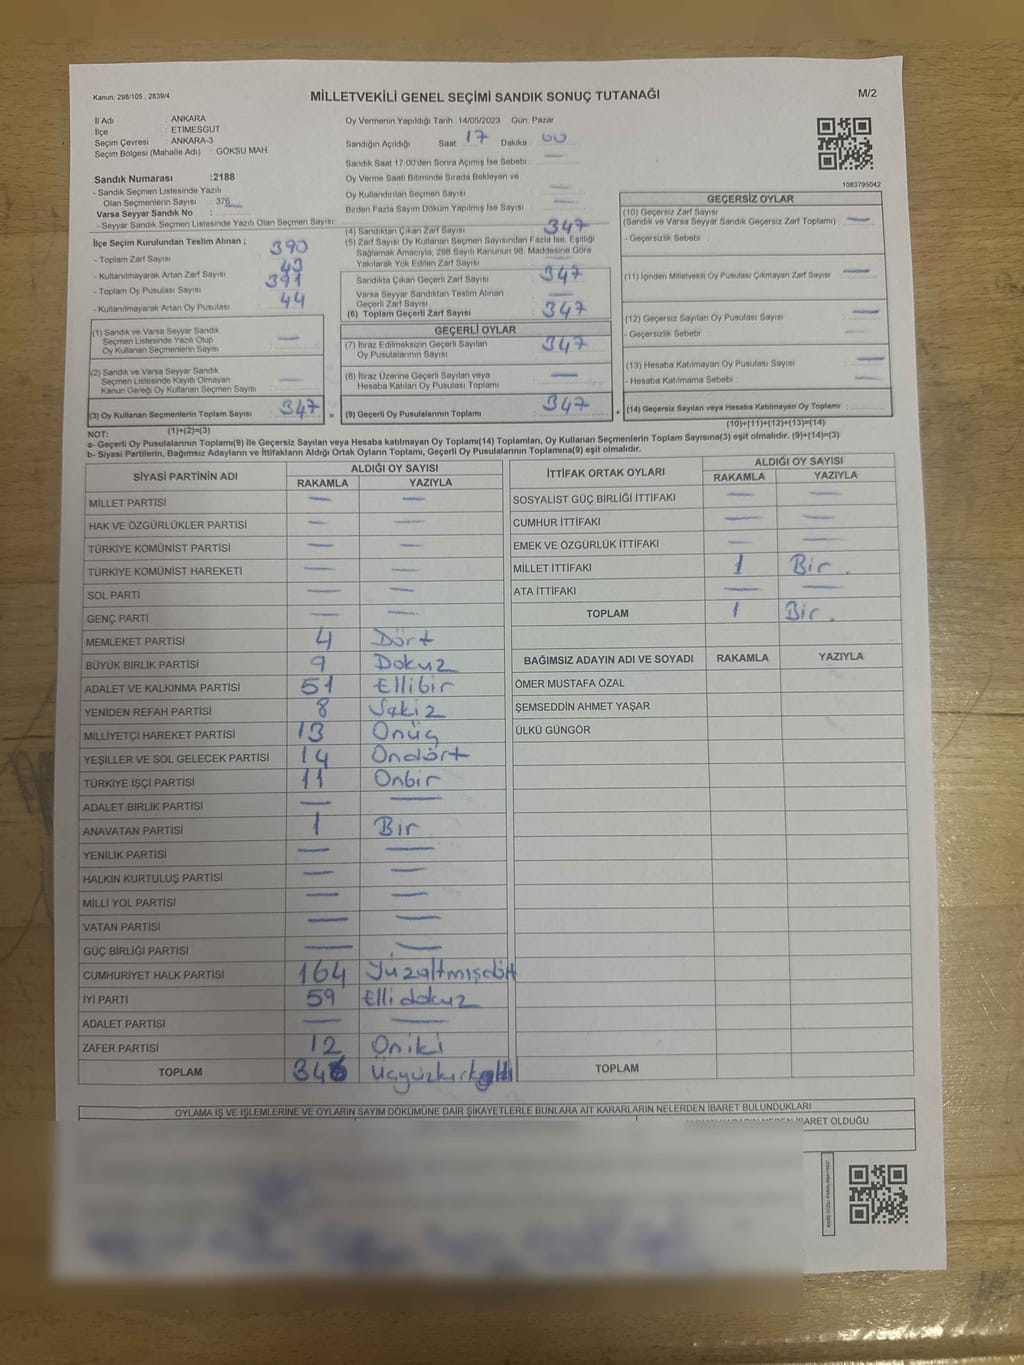 Kanun, 298/105 , 2839/4
MİLLETVEKİLİ GENEL SEÇİMİ SANDIK SONUÇ TUTANAĞI
M/2
İl Adı : ANKARA
İlçe : ETİMESGUT
Seçim Çevresi : ANKARA-3
Seçim Bölgesi (Mahalle Adı) : GÖKSU MAH
Oy Vermenin Yapıldığı Tarih :14/05/2023 Gün: Pazar
Sandığın Açıldığı Saat 17 Dakika : 00
Sandık Saat 17:00'den Sonra Açılmış İse Sebebi : —
Oy Verme Saati Bitiminde Sırada Bekleyen ve
Oy Kullandırılan Seçmen Sayısı —
Birden Fazla Sayım Döküm Yapılmış İse Sayısı —
1083795042
Sandık Numarası :2188
- Sandık Seçmen Listesinde Yazılı
Olan Seçmenlerin Sayısı : 376
Varsa Seyyar Sandık No :
- Seyyar Sandık Seçmen Listesinde Yazılı Olan Seçmen Sayısı
İlçe Seçim Kurulundan Teslim Alınan ;
- Toplam Zarf Sayısı 390
- Kullanılmayarak Artan Zarf Sayısı 43
- Toplam Oy Pusulası Sayısı 391
- Kullanılmayarak Artan Oy Pusulası 44
(1) Sandık ve Varsa Seyyar Sandık
Seçmen Listesinde Yazılı Olup
Oy Kullanan Seçmenlerin Sayısı —
(2) Sandık ve Varsa Seyyar Sandık
Seçmen Listesinde Kayıtlı Olmayan
Kanun Gereği Oy Kullanan Seçmen Sayısı —
(3) Oy Kullanan Seçmenlerin Toplam Sayısı 347 =
(1)+(2)=(3)
(4) Sandıktan Çıkan Zarf Sayısı 347
(5) Zarf Sayısı Oy Kullanan Seçmen Sayısından Fazla İse, Eşitliği
Sağlamak Amacıyla, 298 Sayılı Kanunun 98. Maddesine Göre
Yakılarak Yok Edilen Zarf Sayısı —
Sandıkta Çıkan Geçerli Zarf Sayısı 347
Varsa Seyyar Sandıktan Teslim Alınan
Geçerli Zarf Sayısı —
(6) Toplam Geçerli Zarf Sayısı 347
GEÇERLİ OYLAR
(7) İtiraz Edilmeksizin Geçerli Sayılan
Oy Pusulalarının Sayısı 347
(8) İtiraz Üzerine Geçerli Sayılan veya
Hesaba Katılan Oy Pusulası Toplamı —
(9) Geçerli Oy Pusulalarının Toplamı 347 +
GEÇERSİZ OYLAR
(10) Geçersiz Zarf Sayısı
(Sandık ve Varsa Seyyar Sandık Geçersiz Zarf Toplamı) —
- Geçersizlik Sebebi :
(11) İçinden Milletvekili Oy Pusulası Çıkmayan Zarf Sayısı —
(12) Geçersiz Sayılan Oy Pusulası Sayısı —
- Geçersizlik Sebebi : —
(13) Hesaba Katılmayan Oy Pusulası Sayısı —
- Hesaba Katılmama Sebebi : —
(14) Geçersiz Sayılan veya Hesaba Katılmayan Oy Toplamı
(10)+(11)+(12)+(13)=(14)
NOT:
a- Geçerli Oy Pusulalarının Toplamı(9) ile Geçersiz Sayılan veya Hesaba katılmayan Oy Toplamı(14) Toplamları, Oy Kullanan Seçmenlerin Toplam Sayısına(3) eşit olmalıdır. (9)+(14)=(3)
b- Siyasi Partilerin, Bağımsız Adayların ve İttifakların Aldığı Ortak Oyların Toplamı, Geçerli Oy Pusulalarının Toplamına(9) eşit olmalıdır.
SİYASİ PARTİNİN ADI ALDIĞI OY SAYISI
RAKAMLA YAZIYLA
MİLLET PARTİSİ — —
HAK VE ÖZGÜRLÜKLER PARTİSİ — —
TÜRKİYE KOMÜNİST PARTİSİ — —
TÜRKİYE KOMÜNİST HAREKETİ — —
SOL PARTİ — —
GENÇ PARTİ — —
MEMLEKET PARTİSİ 4 Dört
BÜYÜK BİRLİK PARTİSİ 9 Dokuz
ADALET VE KALKINMA PARTİSİ 51 Ellibir
YENİDEN REFAH PARTİSİ 8 Sekiz
MİLLİYETÇİ HAREKET PARTİSİ 13 Onüç
YEŞİLLER VE SOL GELECEK PARTİSİ 14 Ondört
TÜRKİYE İŞÇİ PARTİSİ 11 Onbir
ADALET BİRLİK PARTİSİ — —
ANAVATAN PARTİSİ 1 Bir
YENİLİK PARTİSİ — —
HALKIN KURTULUŞ PARTİSİ — —
MİLLİ YOL PARTİSİ — —
VATAN PARTİSİ — —
GÜÇ BİRLİĞİ PARTİSİ — —
CUMHURİYET HALK PARTİSİ 164 Yüzaltmışdört
İYİ PARTİ 59 Ellidokuz
ADALET PARTİSİ — —
ZAFER PARTİSİ 12 Oniki
TOPLAM 346 Üçyüzkırkaltı
İTTİFAK ORTAK OYLARI ALDIĞI OY SAYISI
RAKAMLA YAZIYLA
SOSYALİST GÜÇ BİRLİĞİ İTTİFAKI — —
CUMHUR İTTİFAKI — —
EMEK VE ÖZGÜRLÜK İTTİFAKI — —
MİLLET İTTİFAKI 1 Bir.
ATA İTTİFAKI — —
TOPLAM 1 Bir.
BAĞIMSIZ ADAYIN ADI VE SOYADI RAKAMLA YAZIYLA
ÖMER MUSTAFA ÖZAL
ŞEMSEDDİN AHMET YAŞAR
ÜLKÜ GÜNGÖR
TOPLAM
OYLAMA İŞ VE İŞLEMLERİNE VE OYLARIN SAYIM DÖKÜMÜNE DAİR ŞİKAYETLERLE BUNLARA AİT KARARLARIN NELERDEN İBARET BULUNDUKLARI
İBARET OLDUĞU